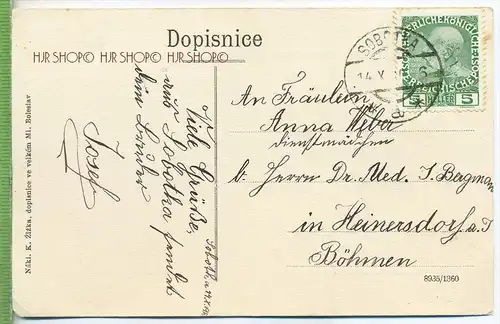 Dopisnice
HJR SHOP© HJR SHOP© HJR SHOP©
SOBOTKA
14 X
KAISERLICHE KÖNIGLICHE ÖSTERREICHISCHE POST
5 HELLER 5
An Fräulein
Anna Weber
dienstmädchen
b. Herrn Dr. Med. J. Bergman
in Heinersdorf a. T.
Böhmen
Viele Grüße
aus Sobotka sendet
dein Bruder
Josef
Sobotka
Nákl. K. Žižka, dopisnice ve velkém Ml. Boleslav
8935/1360